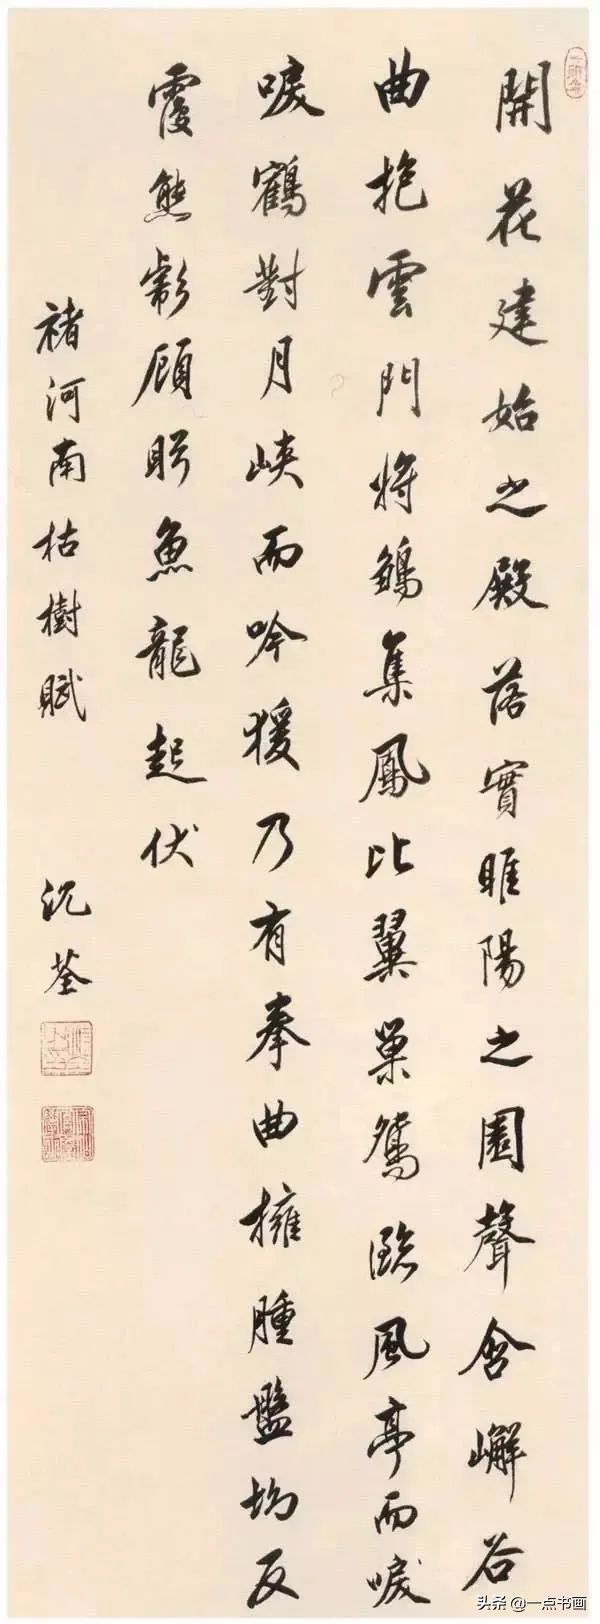 開花建始之殿落實睢陽之園聲含嶰谷
曲抱雲門將鶵集鳳比翼巢鴛臨風亭而唳
唳鶴對月峽而吟猨乃有拳曲擁腫盤坳反
覆熊彪顧盼魚龍起伏
褚河南枯樹賦 沈荃
头条@一点书画